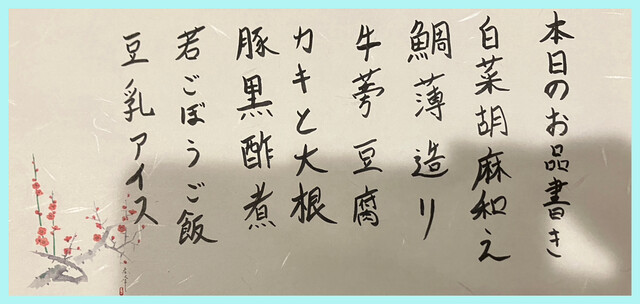 本日のお品書き
白菜胡麻和え
鯛薄造り
牛蒡豆腐
カキと大根
豚黒酢煮
若ごぼうご飯
豆乳アイス